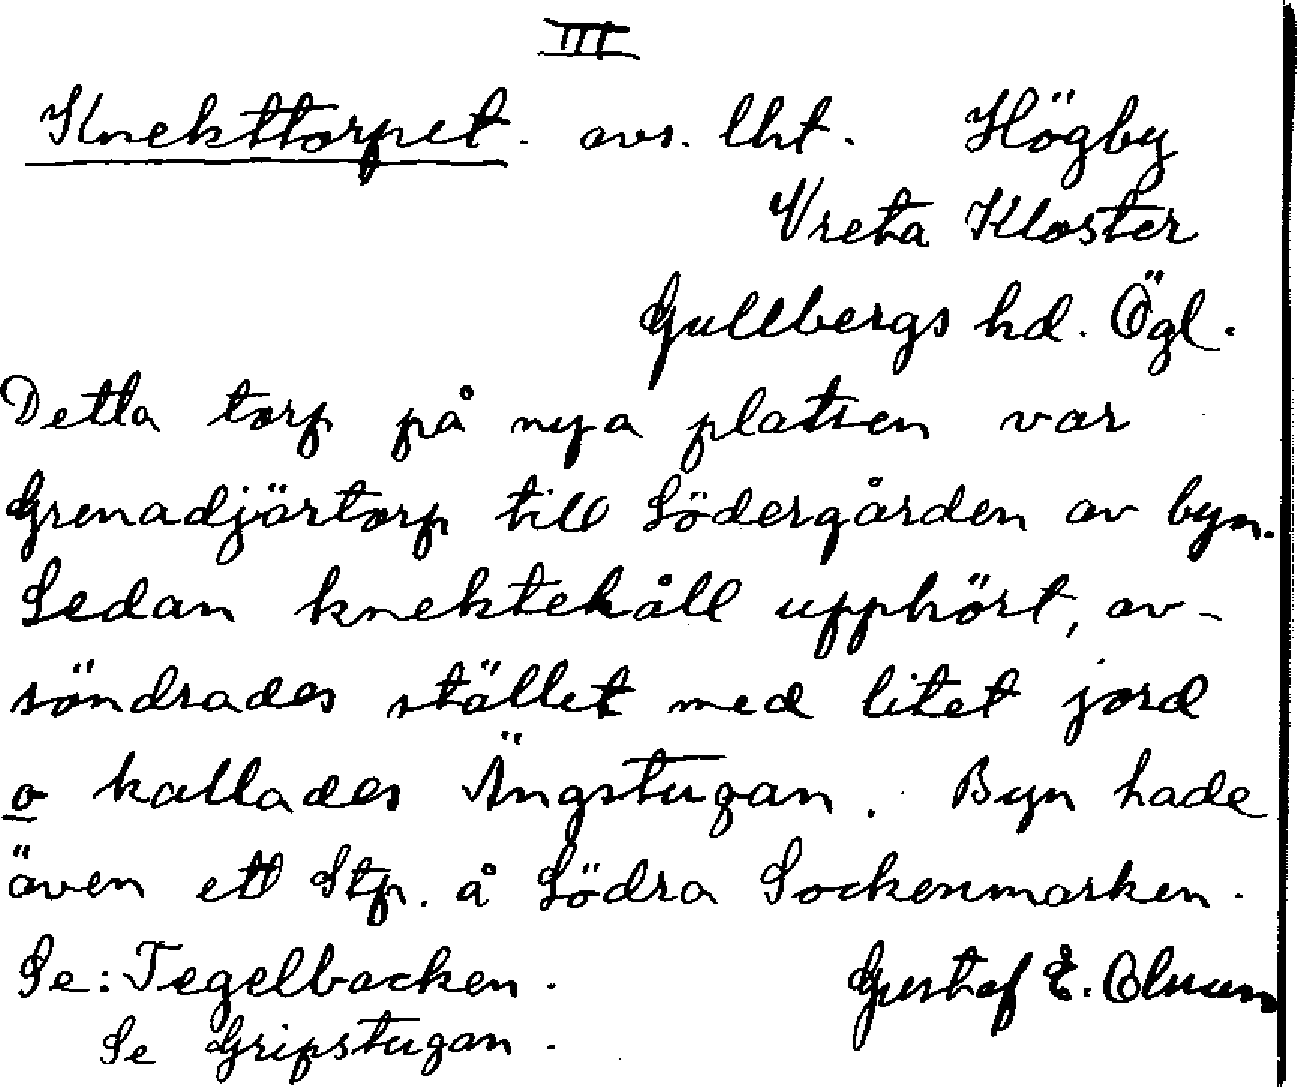 III
Knekttorpet. avs. lht. Högby
Vreta Kloster
Gullbergs hd. Ögl.
Detta torp på nya platsen var
Grenadjärtorp till Södergården av byn.
Sedan knektehåll upphört, av-
söndrades stället med litet jord
o kallades Ängstugan. Byn hade
även ett Stp. å Södra Sockenmarken.
Se: Tegelbacken. Gustaf E.
Se Gripstugan.